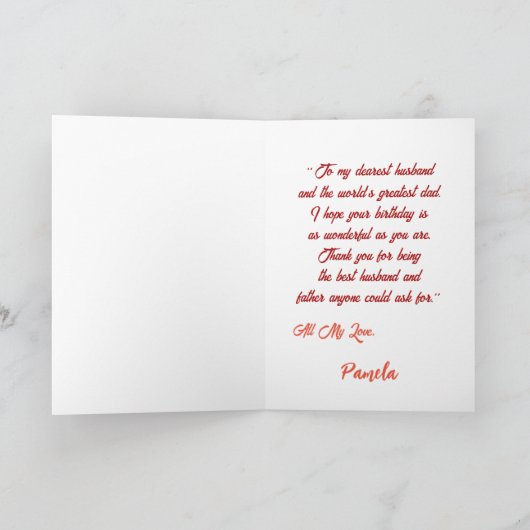 "To my dearest husband
and the world's greatest dad.
I hope your birthday is
as wonderful as you are.
Thank you for being
the best husband and
father anyone could ask for."
All My Love,
Pamela